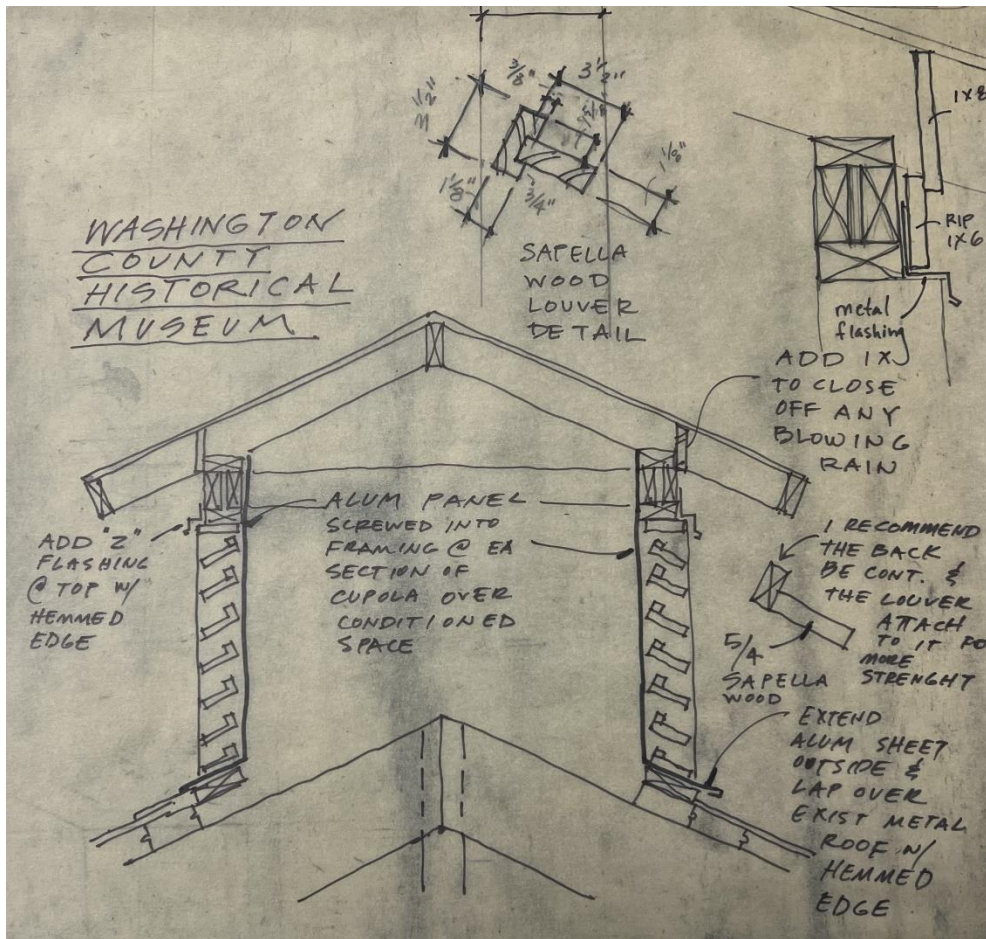 WASHINGTON
COUNTY
HISTORICAL
MUSEUM
3/8"
3 1/2"
3 1/2"
1 1/8"
3/4"
1 1/8"
SAPELLA
WOOD
LOUVER
DETAIL
1X8
RIP
1X6
metal
flashing
ADD 1X
TO CLOSE
OFF ANY
BLOWING
RAIN
ADD "Z"
FLASHING
@ TOP W/
HEMMED
EDGE
ALUM PANEL
SCREWED INTO
FRAMING @ EA
SECTION OF
CUPOLA OVER
CONDITIONED
SPACE
I RECOMMEND
THE BACK
BE CONT. &
THE LOUVER
ATTACH
TO IT FO
MORE
STRENGHT
5/4
SAPELLA
WOOD
EXTEND
ALUM SHEET
OUTSIDE &
LAP OVER
EXIST METAL
ROOF W/
HEMMED
EDGE